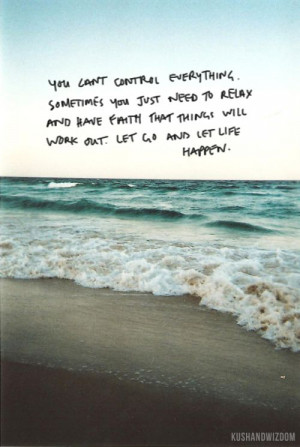 You CAN'T CONTROL EVERYTHING.
SOMETIMES you JUST NEED TO RELAX
AND HAVE FAITH THAT THINGS WILL
WORK OUT. LET GO AND LET LIFE
HAPPEN.
KUSHANDWIZDOM